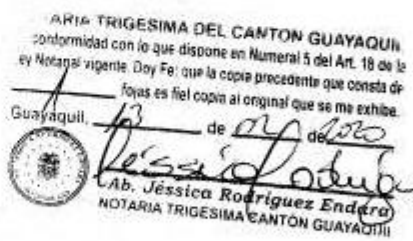 ARIA TRIGESIMA DEL CANTON GUAYAQUIL
conformidad con lo que dispone en Numeral 5 del Art. 18 de la
ey Notarial vigente. Doy Fe: que la copia precedente que consta de
1 fojas es fiel copia al original que se me exhibe.
Guayaquil, 13 de 02 de 2020
Ab. Jéssica Rodríguez Endara
NOTARIA TRIGESIMA CANTÓN GUAYAQUIL